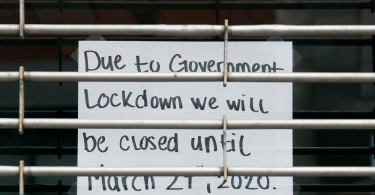 Due to Government
Lockdown we will
be closed until
March 2 , 2020.